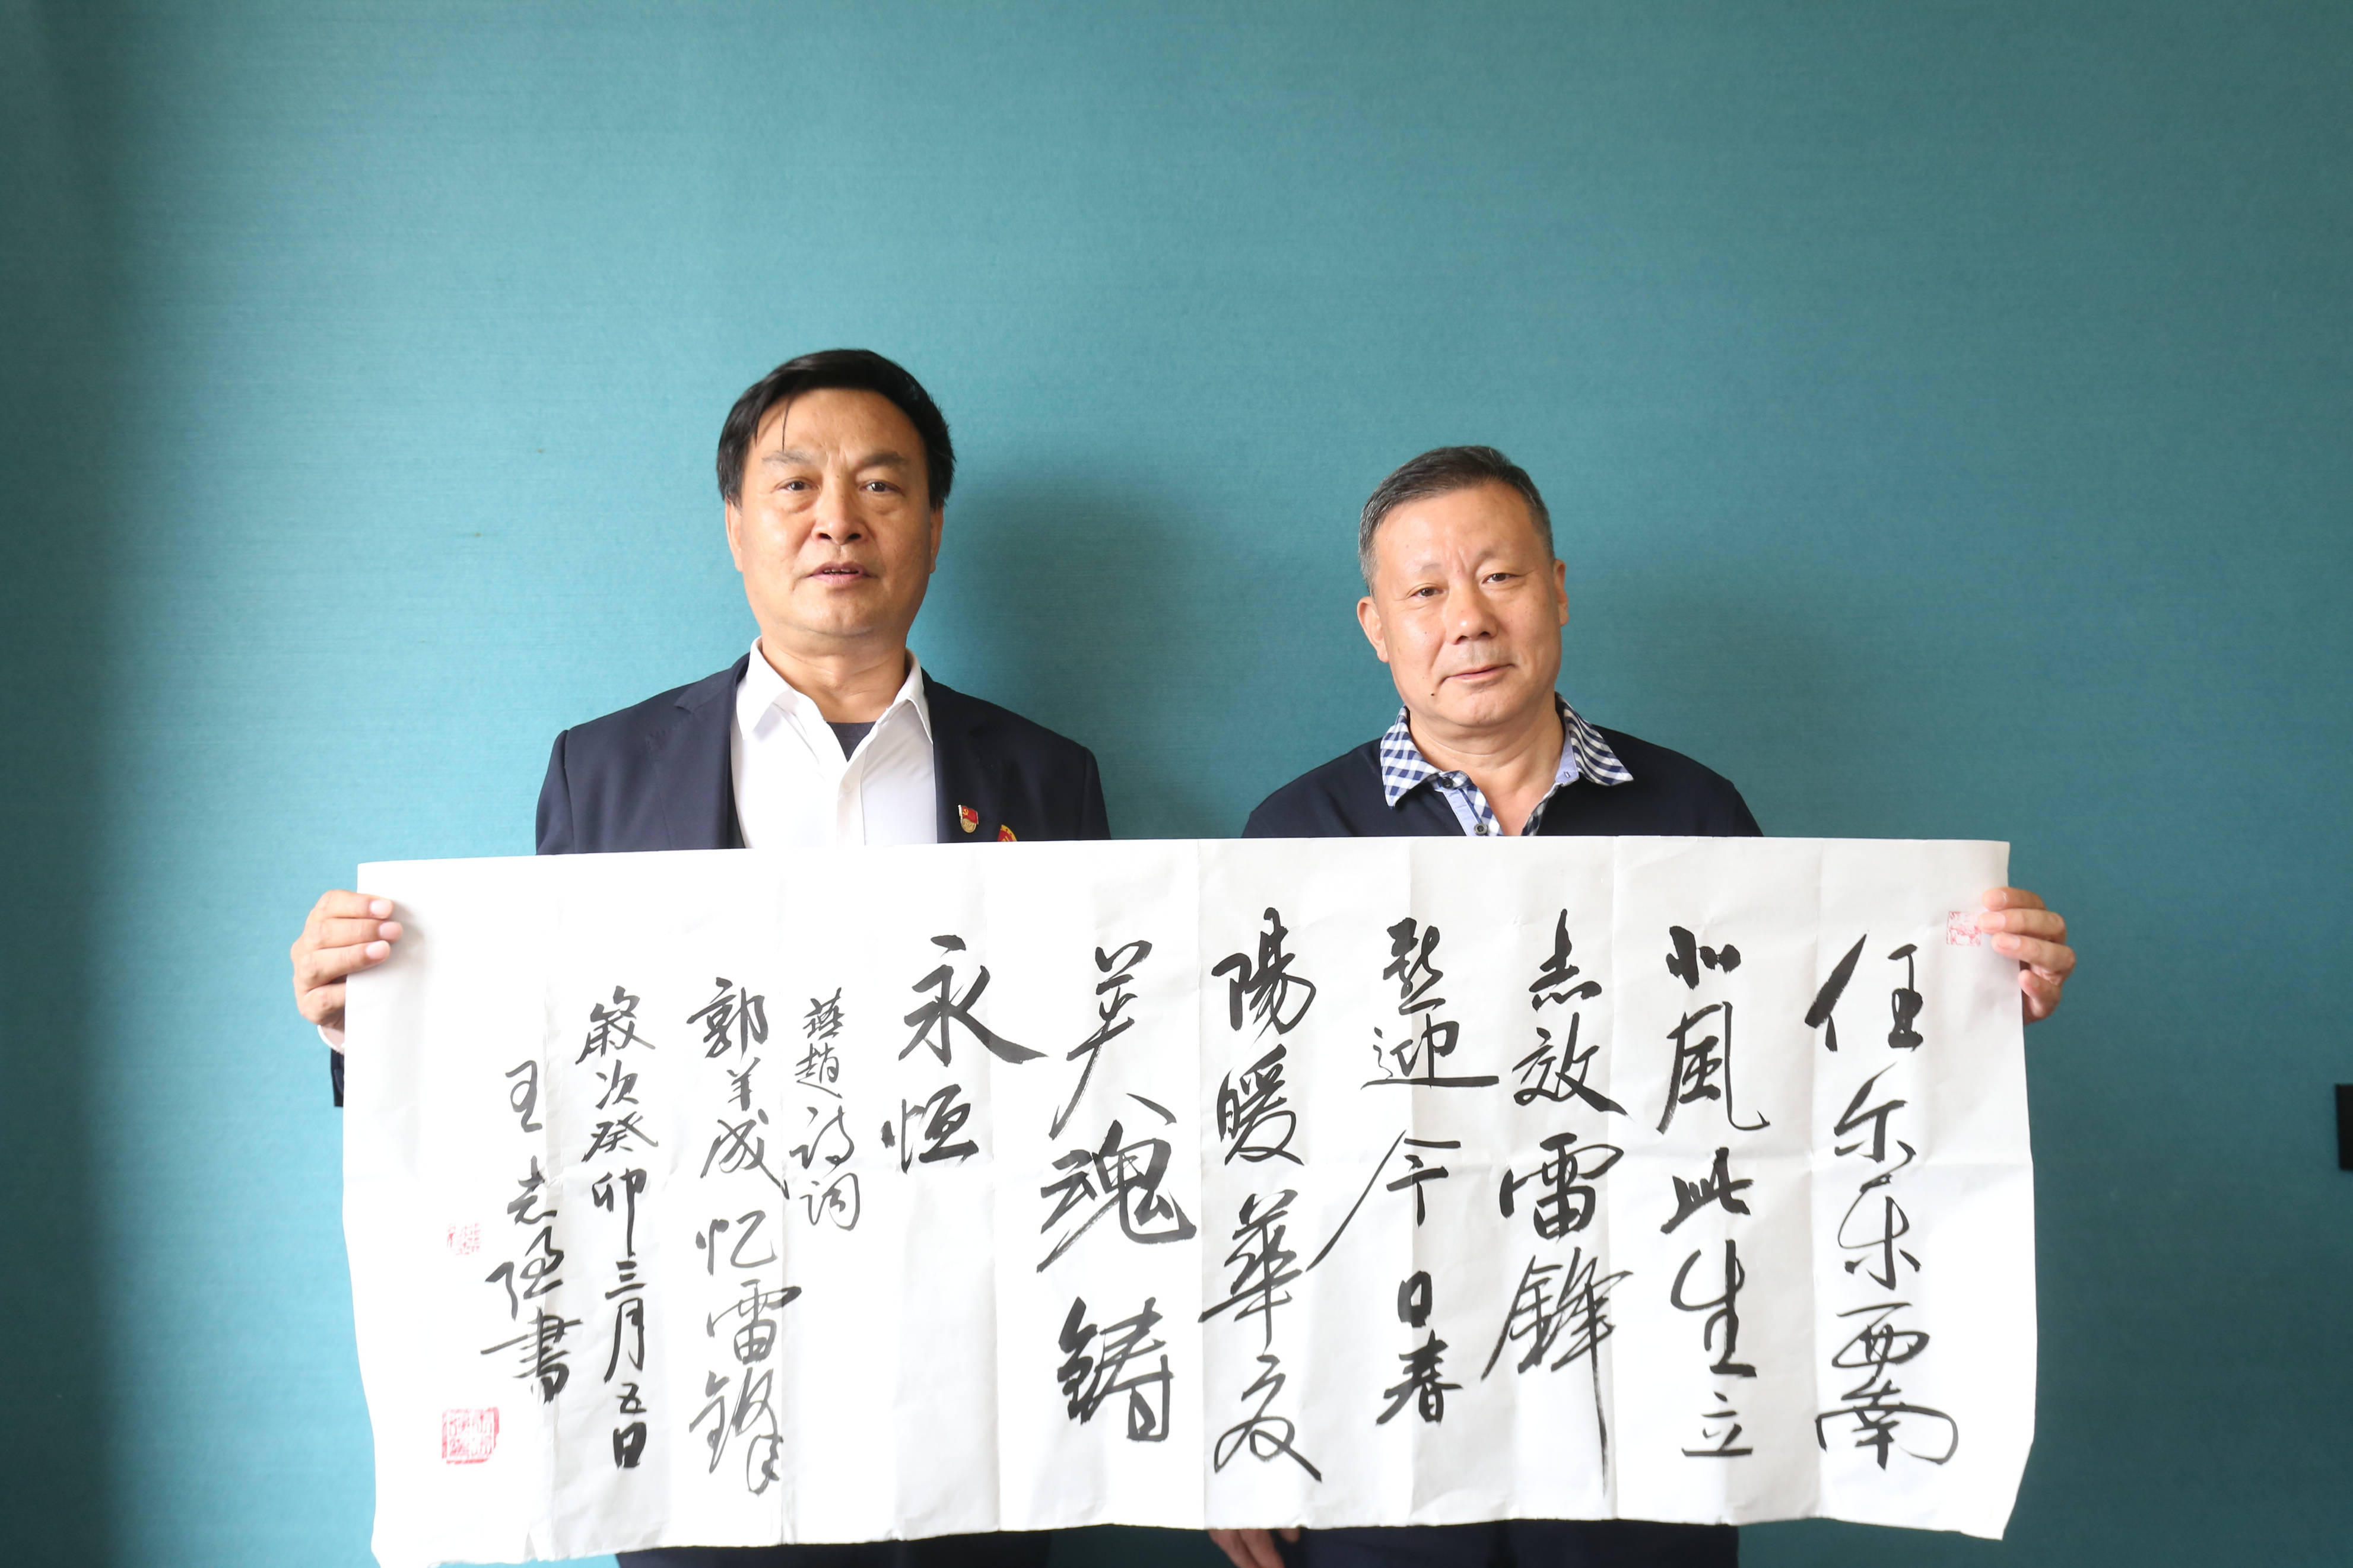 任尔东西南
北风此生立
志效雷鋒
迎今日春
陽暖華夏
英魂铸
永恒
燕趙诗词
郭羊成忆雷锋
嵗次癸卯三月五日
王志强書